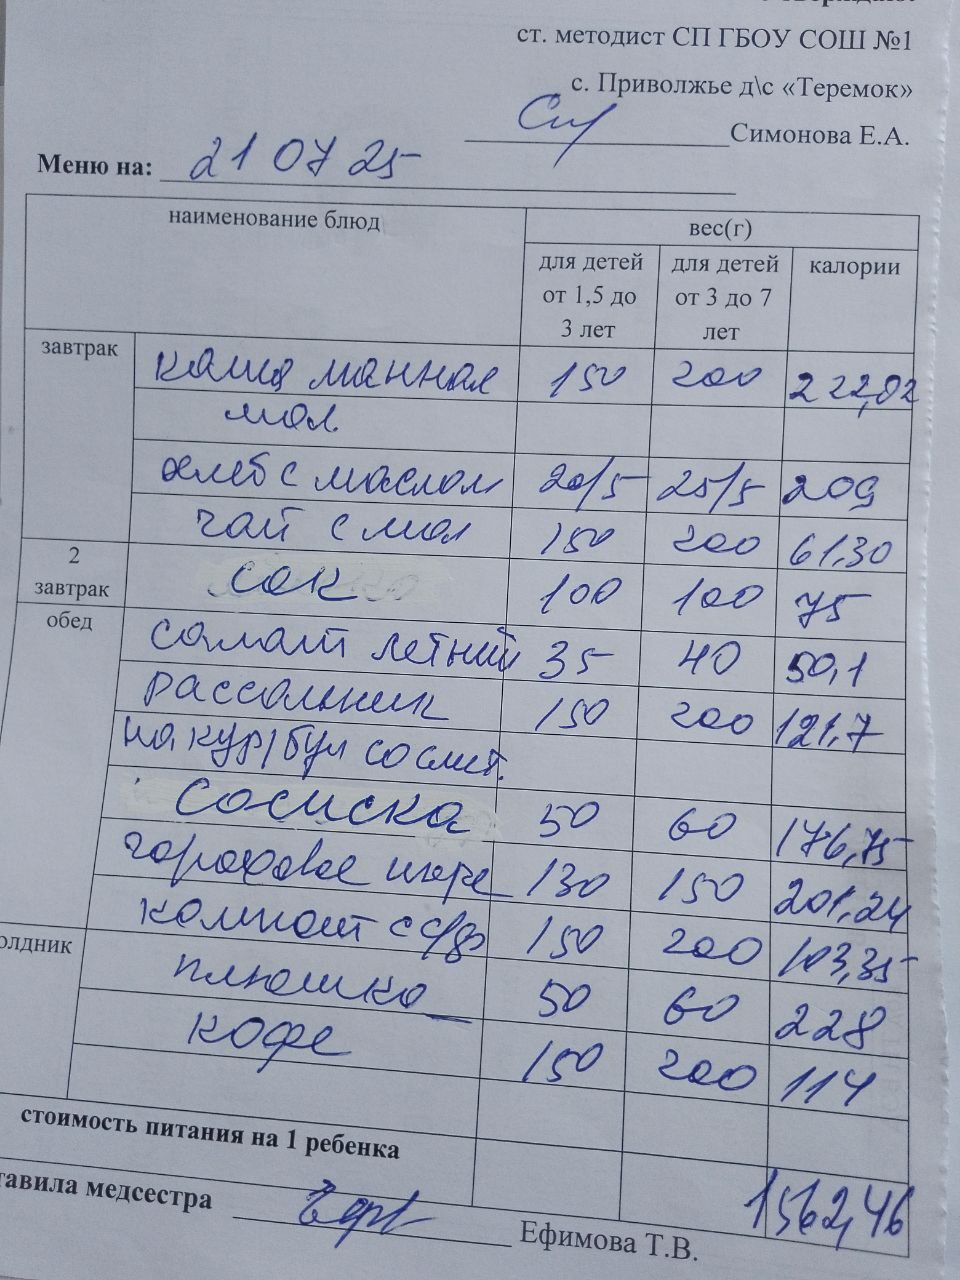 ст. методист СП ГБОУ СОШ №1
с. Приволжье д\с «Теремок»
Симонова Е.А.
Меню на: 21 07 25
наименование блюд
вес(г)
для детей от 1,5 до 3 лет
для детей от 3 до 7 лет
калории
завтрак
каша манная 150 200 222,02
мол.
хлеб с маслом 20/5 25/5 209
чай с мол 150 200 61,30
2 завтрак
сок 100 100 75
обед
салат летний 35 40 50,1
рассольник 150 200 121,7
на кур/бул со смет.
сосиска 50 60 176,75
гороховое пюре 130 150 201,24
компот с с/ф 150 200 103,35
олдник
плюшка 50 60 228
кофе 150 200 114
стоимость питания на 1 ребенка
1562,46
тавила медсестра
Ефимова Т.В.